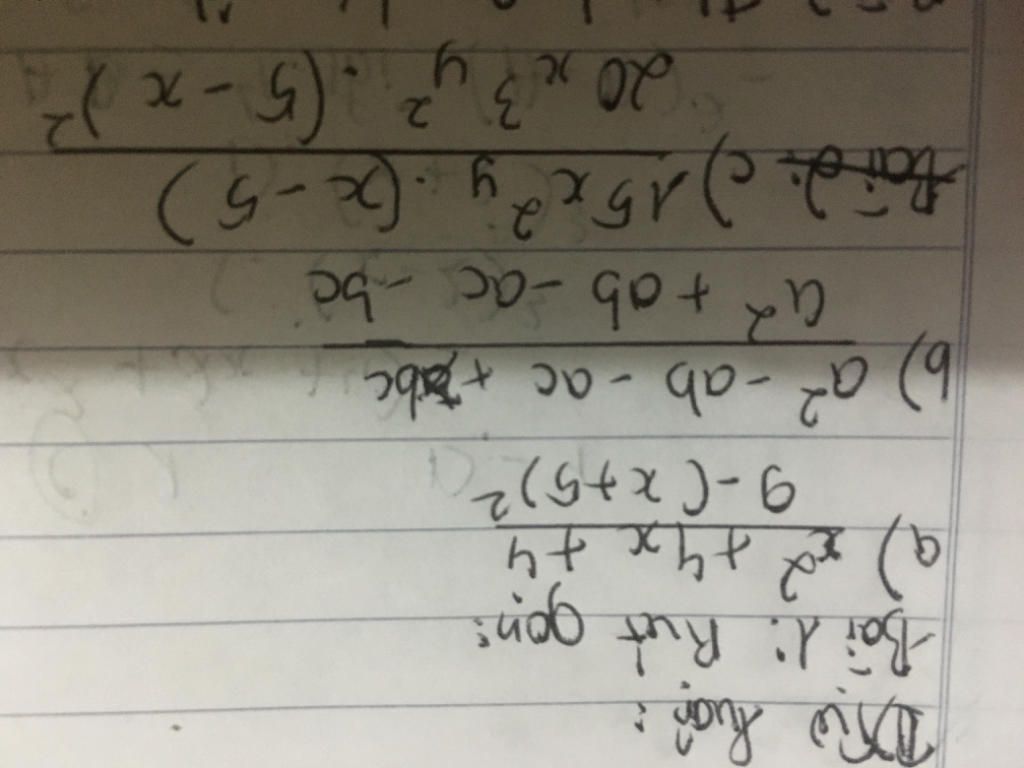 II) Tự luận:
Bài 1: Rút gọn:
a) x² + 4x + 4
9 - (x + 5)²
b) a² - ab - ac + bc
a² + ab - ac - bc
c) 15x²y . (x - 5)
20x³y² . (5 - x)²